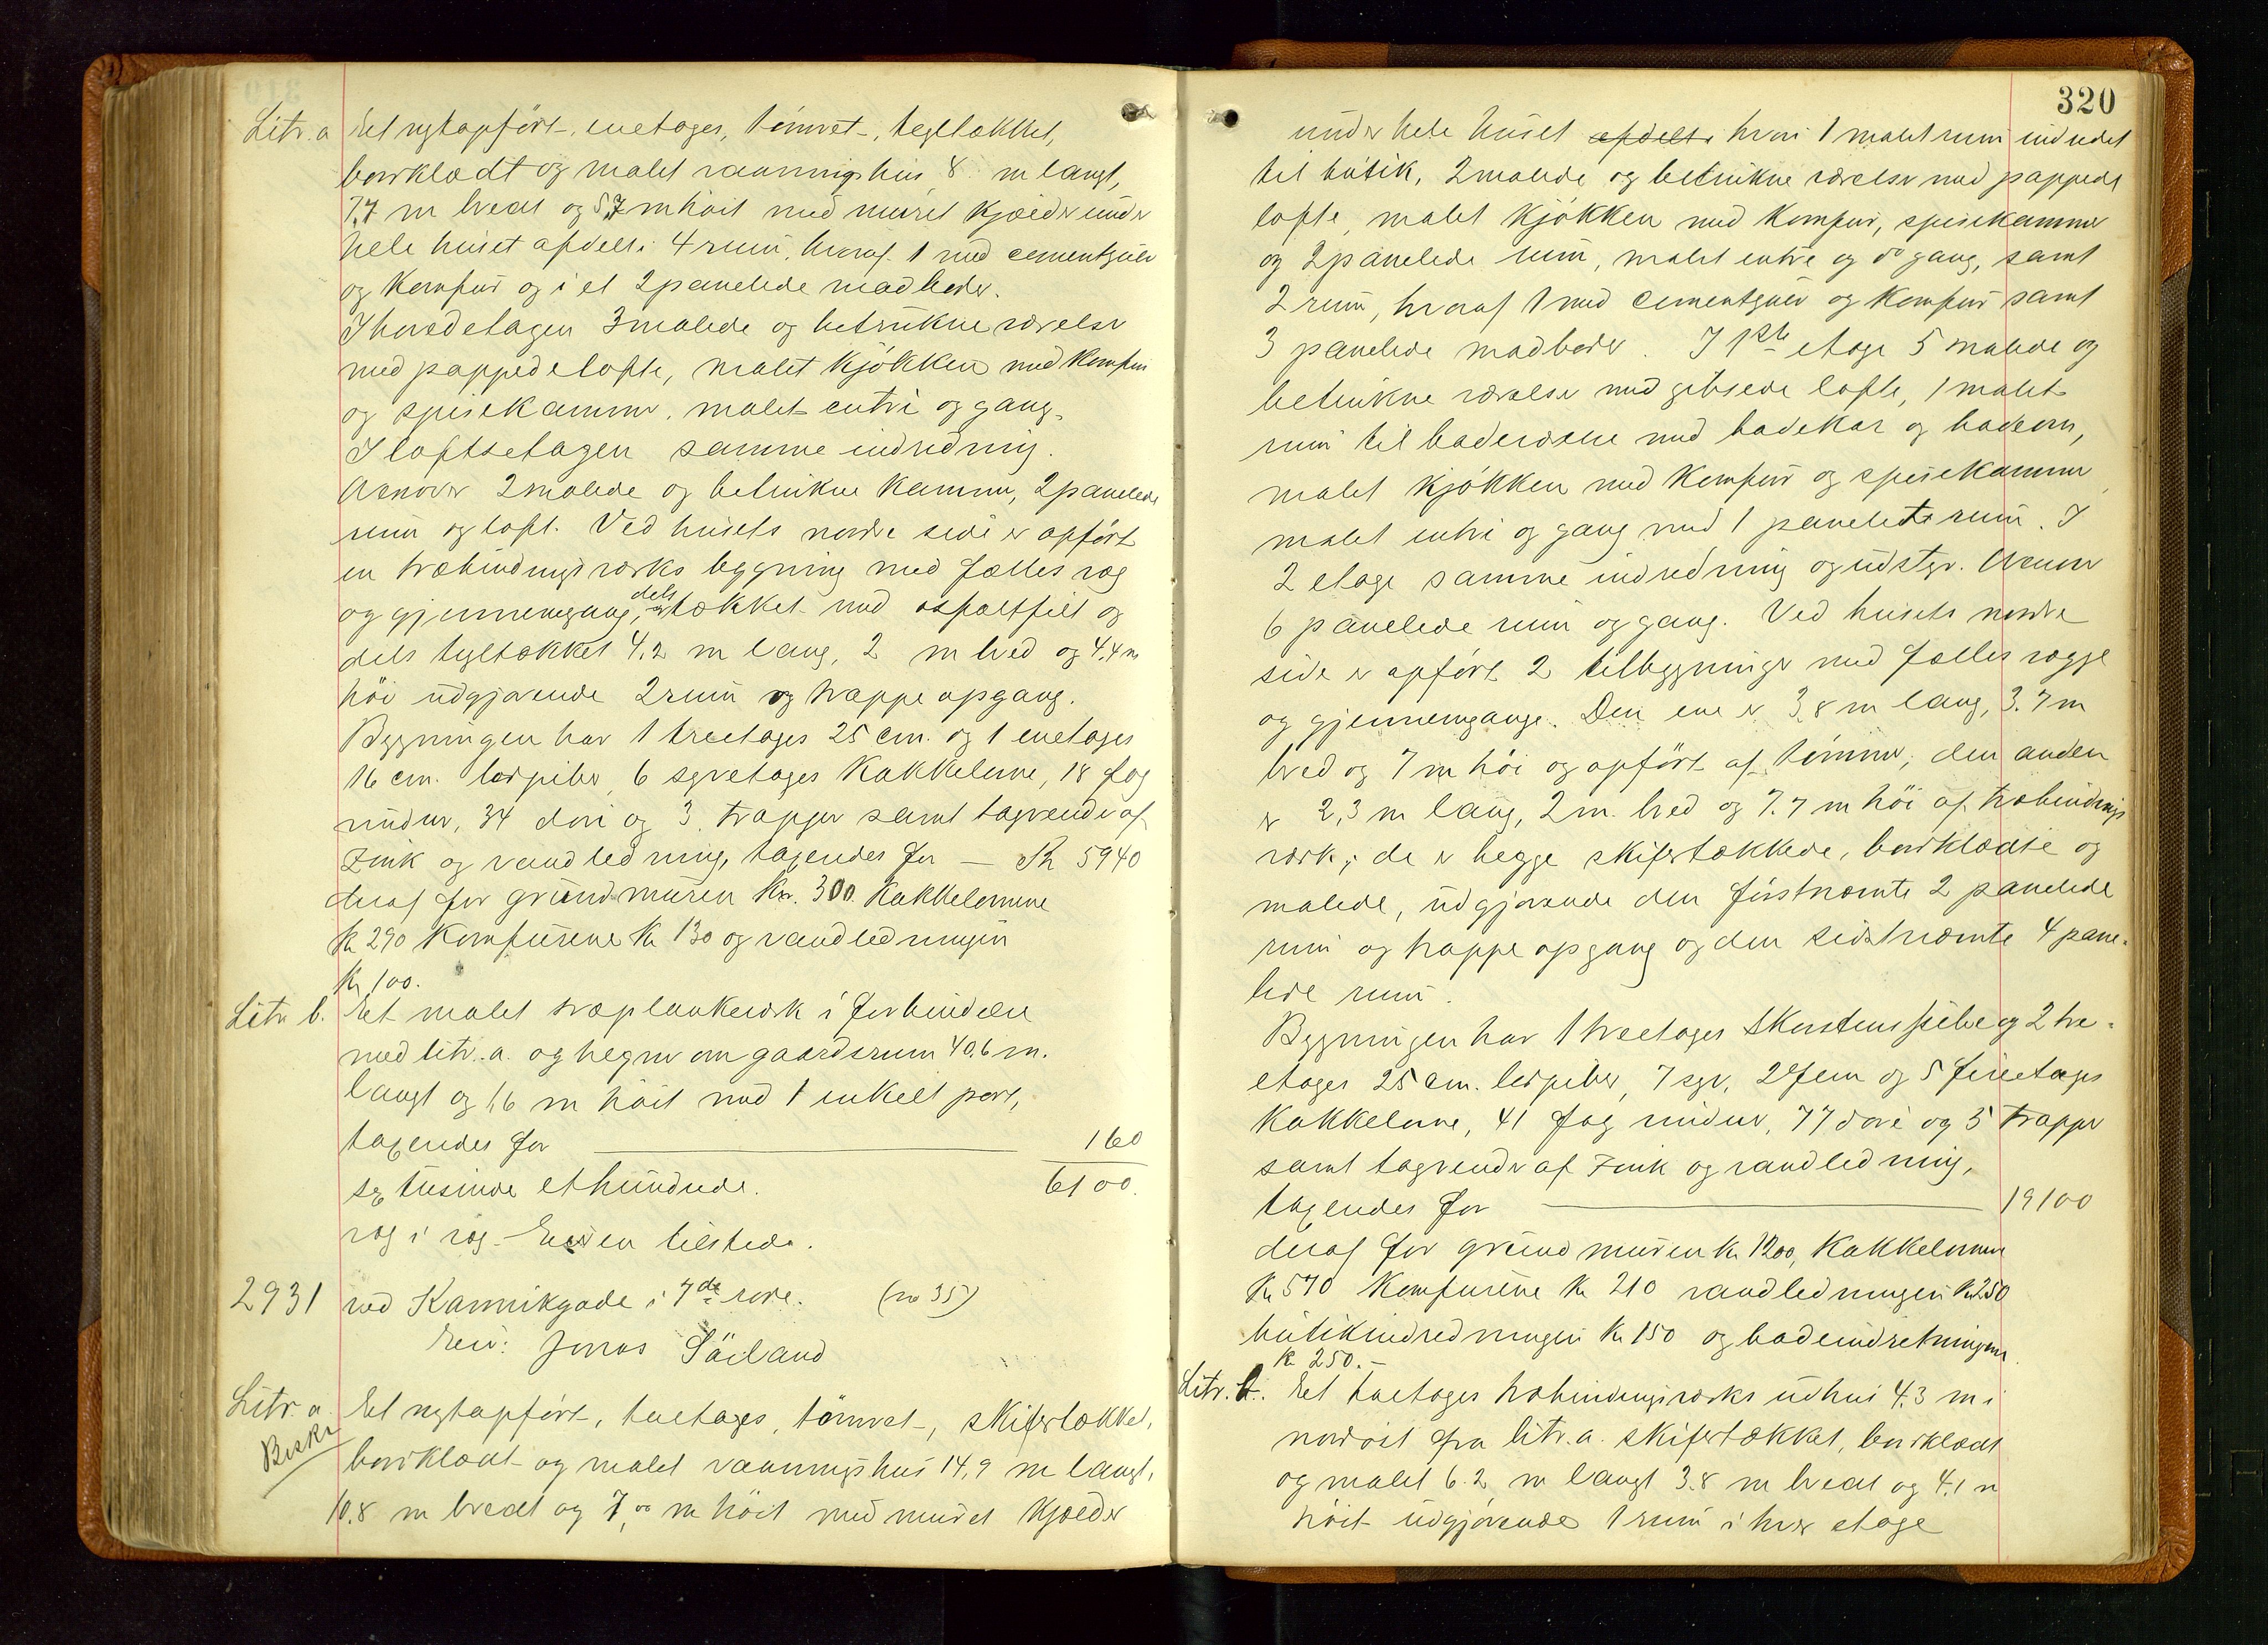 Litr. a Et nyt opført, enetages, tømret, tegltækket,
bordklædt og malet vaaningshus 8 m langt,
7,7 m bredt og 5,7 m høit med muret kjælder under
hele huset afdelt i 4 rum, hvoraf 1 med cementgulv
og komfur og i et 2 panelede madboder.
I hovedetagen 3 malede og betrukne værelser
med pappede lofte, malet kjøkken med komfur
og spisekammer, malet entre og gang.
I loftsetagen samme indredning.
Arnover 2 malede og betrukne kammer, 2 panelede
rum og loft. Ved husets nordre side er opført
en træbindingsværks bygning med fælles væg
og gjennemgang, dels tækket med asfaltfilt og
dels tegltækket 4,2 m lang, 2 m bred og 4,4 m
høi udgjørende 2 rum og trappeopgang.
Bygningen har 1 treetages 25 cm. og 1 enetages
16 cm. lerpiber, 6 syvetages kakkelovne, 18 fag
vinduer, 34 døre og 3 trapper samt tagrender af
Zink og vandledning, taxeredes for — Kr 5940
deraf for grundmuren Kr. 300. Kakkelovnene
Kr 290 Komfurene Kr 130 og vandledningen
Kr 100.
Litr b. Et malet træplankeværk i forbindelse
med litr. a. og hegner om gaardsrum 40,6 m.
langt og 1,6 m høit med 1 enkelt port,
taxeredes for — 160
sex tusinde et hundrede. 6100.
væg i væg. Eieren tilstede.
2931 ved Kannikgade i 7de rode. (no 35)
Eier: Jonas Söiland
Litr. a. Et nyt opført, toetages, tømret, skifertækket,
Beskr
bordklædt og malet vaaningshus 14,9 m langt,
10,8 m bredt og 7,00 m høit med muret kjælder
320
under hele huset afdelt i hvori 1 malet rum indredet
til butik, 2 malede og betrukne værelser med pappede
lofte, malet kjøkken med komfur, spisekammer
og 2 panelede rum, malet entre og do gang, samt
2 rum, hvoraf 1 med cementgulv og komfur samt
3 panelede madboder. I 1ste etage 5 malede og
betrukne værelser med gibsede lofte, 1 malet
rum til badeværelse med badekar og badeovn,
malet kjøkken med komfur og spisekammer,
malet entre og gang med 1 panelet rum. I
2 etage samme indredning og udstyr. Arnover
6 panelede rum og gang. Ved husets nordre
side er opført 2 tilbygninger med fælles vægge
og gjennemgange. Den ene er 3,8 m lang, 3.7 m
bred og 7 m høi og opført af tømmer, den anden
er 2,3 m lang, 2 m. bred og 7.7 m høi af træbindings
værk; de er begge skifertækkede, bordklædte og
malede, udgjørende den førstnævnte 2 panelede
rum og trappeopgang og den sidstnævnte 4 pane-
lede rum.
Bygningen har 1 treetages Skorstenspibe og 2 tre-
etages 25 cm. lerpiber, 7 syv, 2 fem og 5 fireetages
kakkelovne, 41 fag vinduer, 77 døre og 5 trapper
samt tagrender af Zink og vandledning,
taxeredes for — 19100
deraf for grundmuren Kr 1200, Kakkelovnene
Kr 570 Komfurene Kr 210 vandledningen Kr 250
butikindredningen Kr 150 og badeindretningene
Kr 250.-
Litr. b. Et toetages træbindingsværks udhus 4.3 m i
nordost fra litr. a. skifertækket, bordklædt
og malet 6.2 m langt 3.8 m bredt og 4,1 m
høit udgjørende 1 rum i hver etage